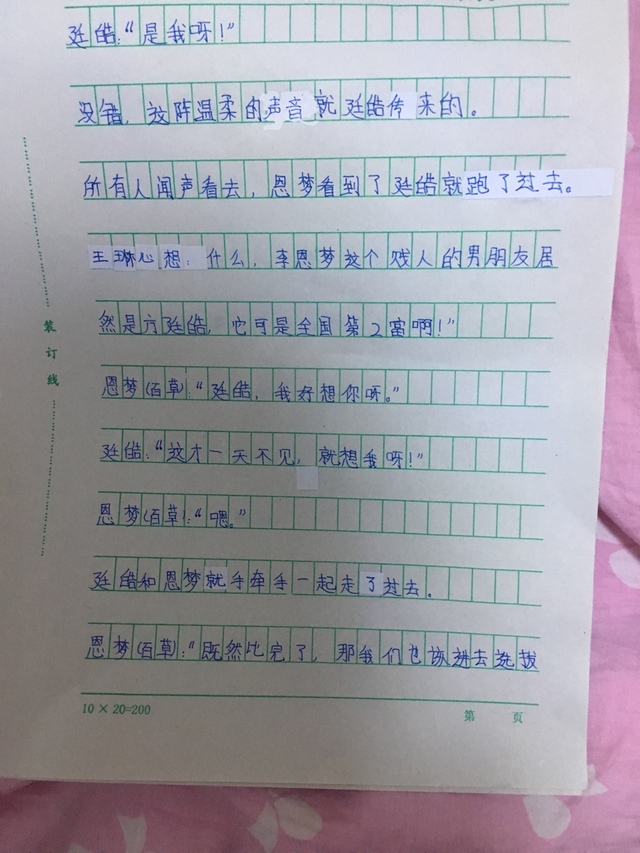 廷皓:“是我呀!”
没错,这阵温柔的声音就廷皓传来的。
所有人闻声看去,恩梦看到了廷皓就跑了过去。
王琳心想:什么,李恩梦这个贱人的男朋友居
然是方廷皓,它可是全国第2富啊!”
恩梦(百草):“廷皓,我好想你呀。”
廷皓:“这才一天不见,就想我呀!”
恩梦(百草):“嗯。”
廷皓和恩梦就手牵手一起走了过去。
恩梦(百草):“既然比完了,那我们也该进去选拔
装订线
10×20=200
第 页